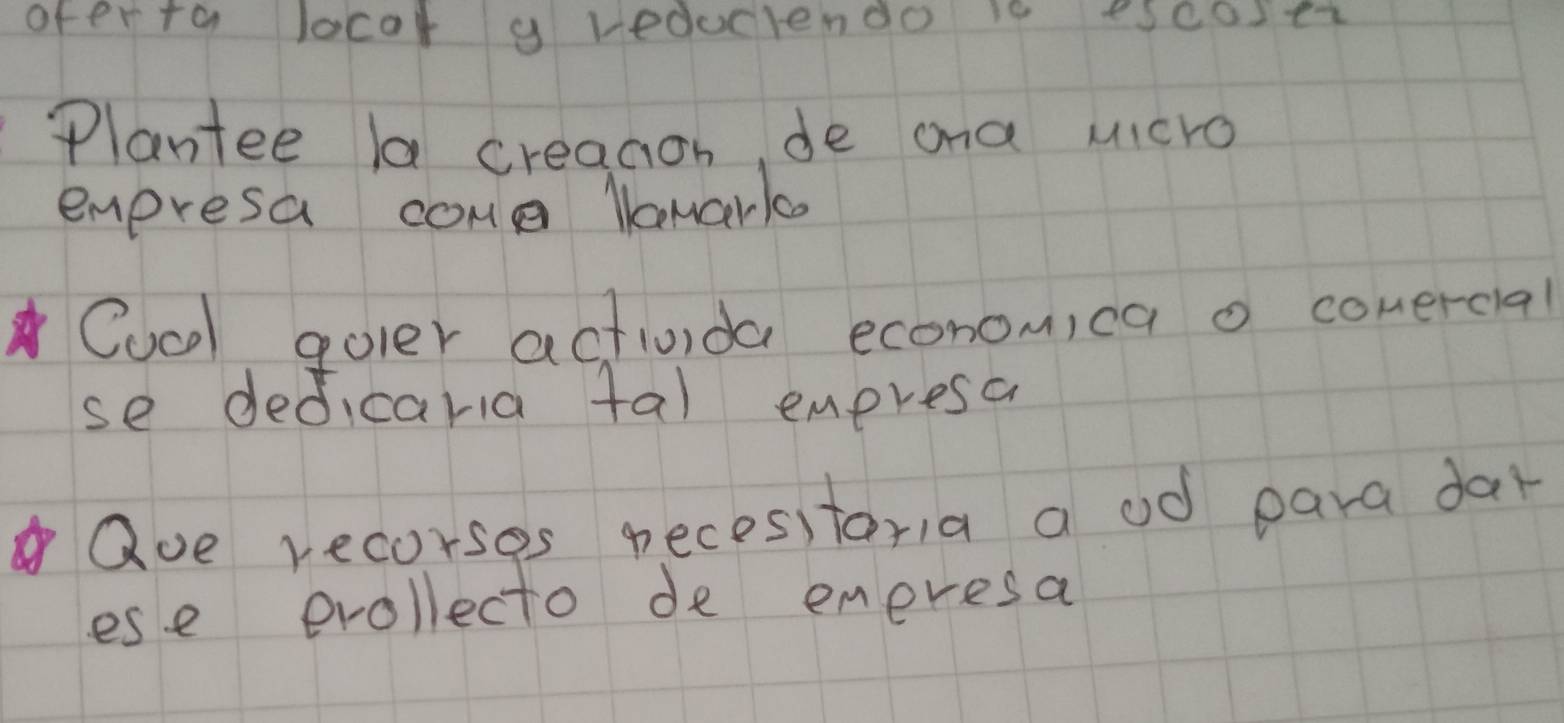 oferta local y reduciendo la escasez
Plantee la creacion de una micro
empresa como llamarlo
Cual quier activida economica o comercial
se dedicaria tal empresa
Que recursos necesitaria a ud para dar
ese prollecto de empresa